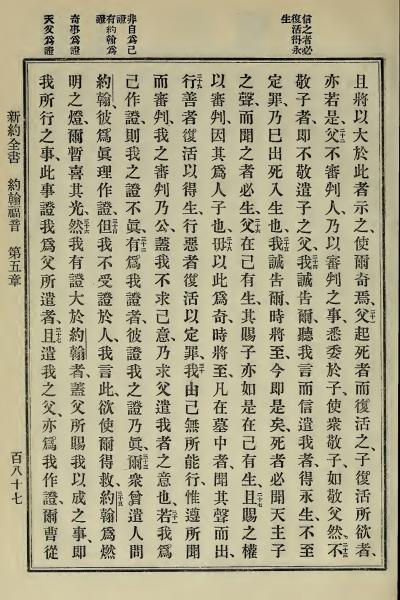 信之者必
復活得永
生
非自爲己
證
有約翰爲
證
奇事爲證
天父爲證
且將以大於此者示之、使爾奇焉、二十一父起死者而復活之、子復活所欲者、
亦若是、二十二父不審判人、乃以審判之事、悉委於子、使衆敬子、如敬父然、二十三不
敬子者、即不敬遣子之父、二十四我誠告爾、聽我言而信遣我者、得永生、不至
定罪、乃已出死入生也、二十五我誠告爾、時將至、今即是矣、死者必聞天主子
之聲、而聞之者必生、二十六父在己有生、其賜子亦如是在己有生、二十七且賜之權
以審判、因其爲人子也、二十八毋以此爲奇、時將至、凡在墓中者、聞其聲而出、
二十九行善者復活以得生、行惡者復活以定罪、三十我由己無所能行、惟遵所聞
而審判、我之審判乃公、蓋我不求己意、乃求父遣我者之意也、三十一若我爲
己作證、則我之證不眞、三十二有爲我證者、彼證我之證乃眞、三十三爾衆曾遣人問
約翰、彼爲眞理作證、三十四但我不受證於人、我言此、欲使爾得救、三十五約翰爲燃
明之燈、爾暫喜其光、三十六然我有證大於約翰者、蓋父所賜我以成之事、即
我所行之事、此事證我爲父所遣者、三十七且遣我之父、亦爲我作證、爾曹從
新約全書　約翰福音　第五章
百八十七